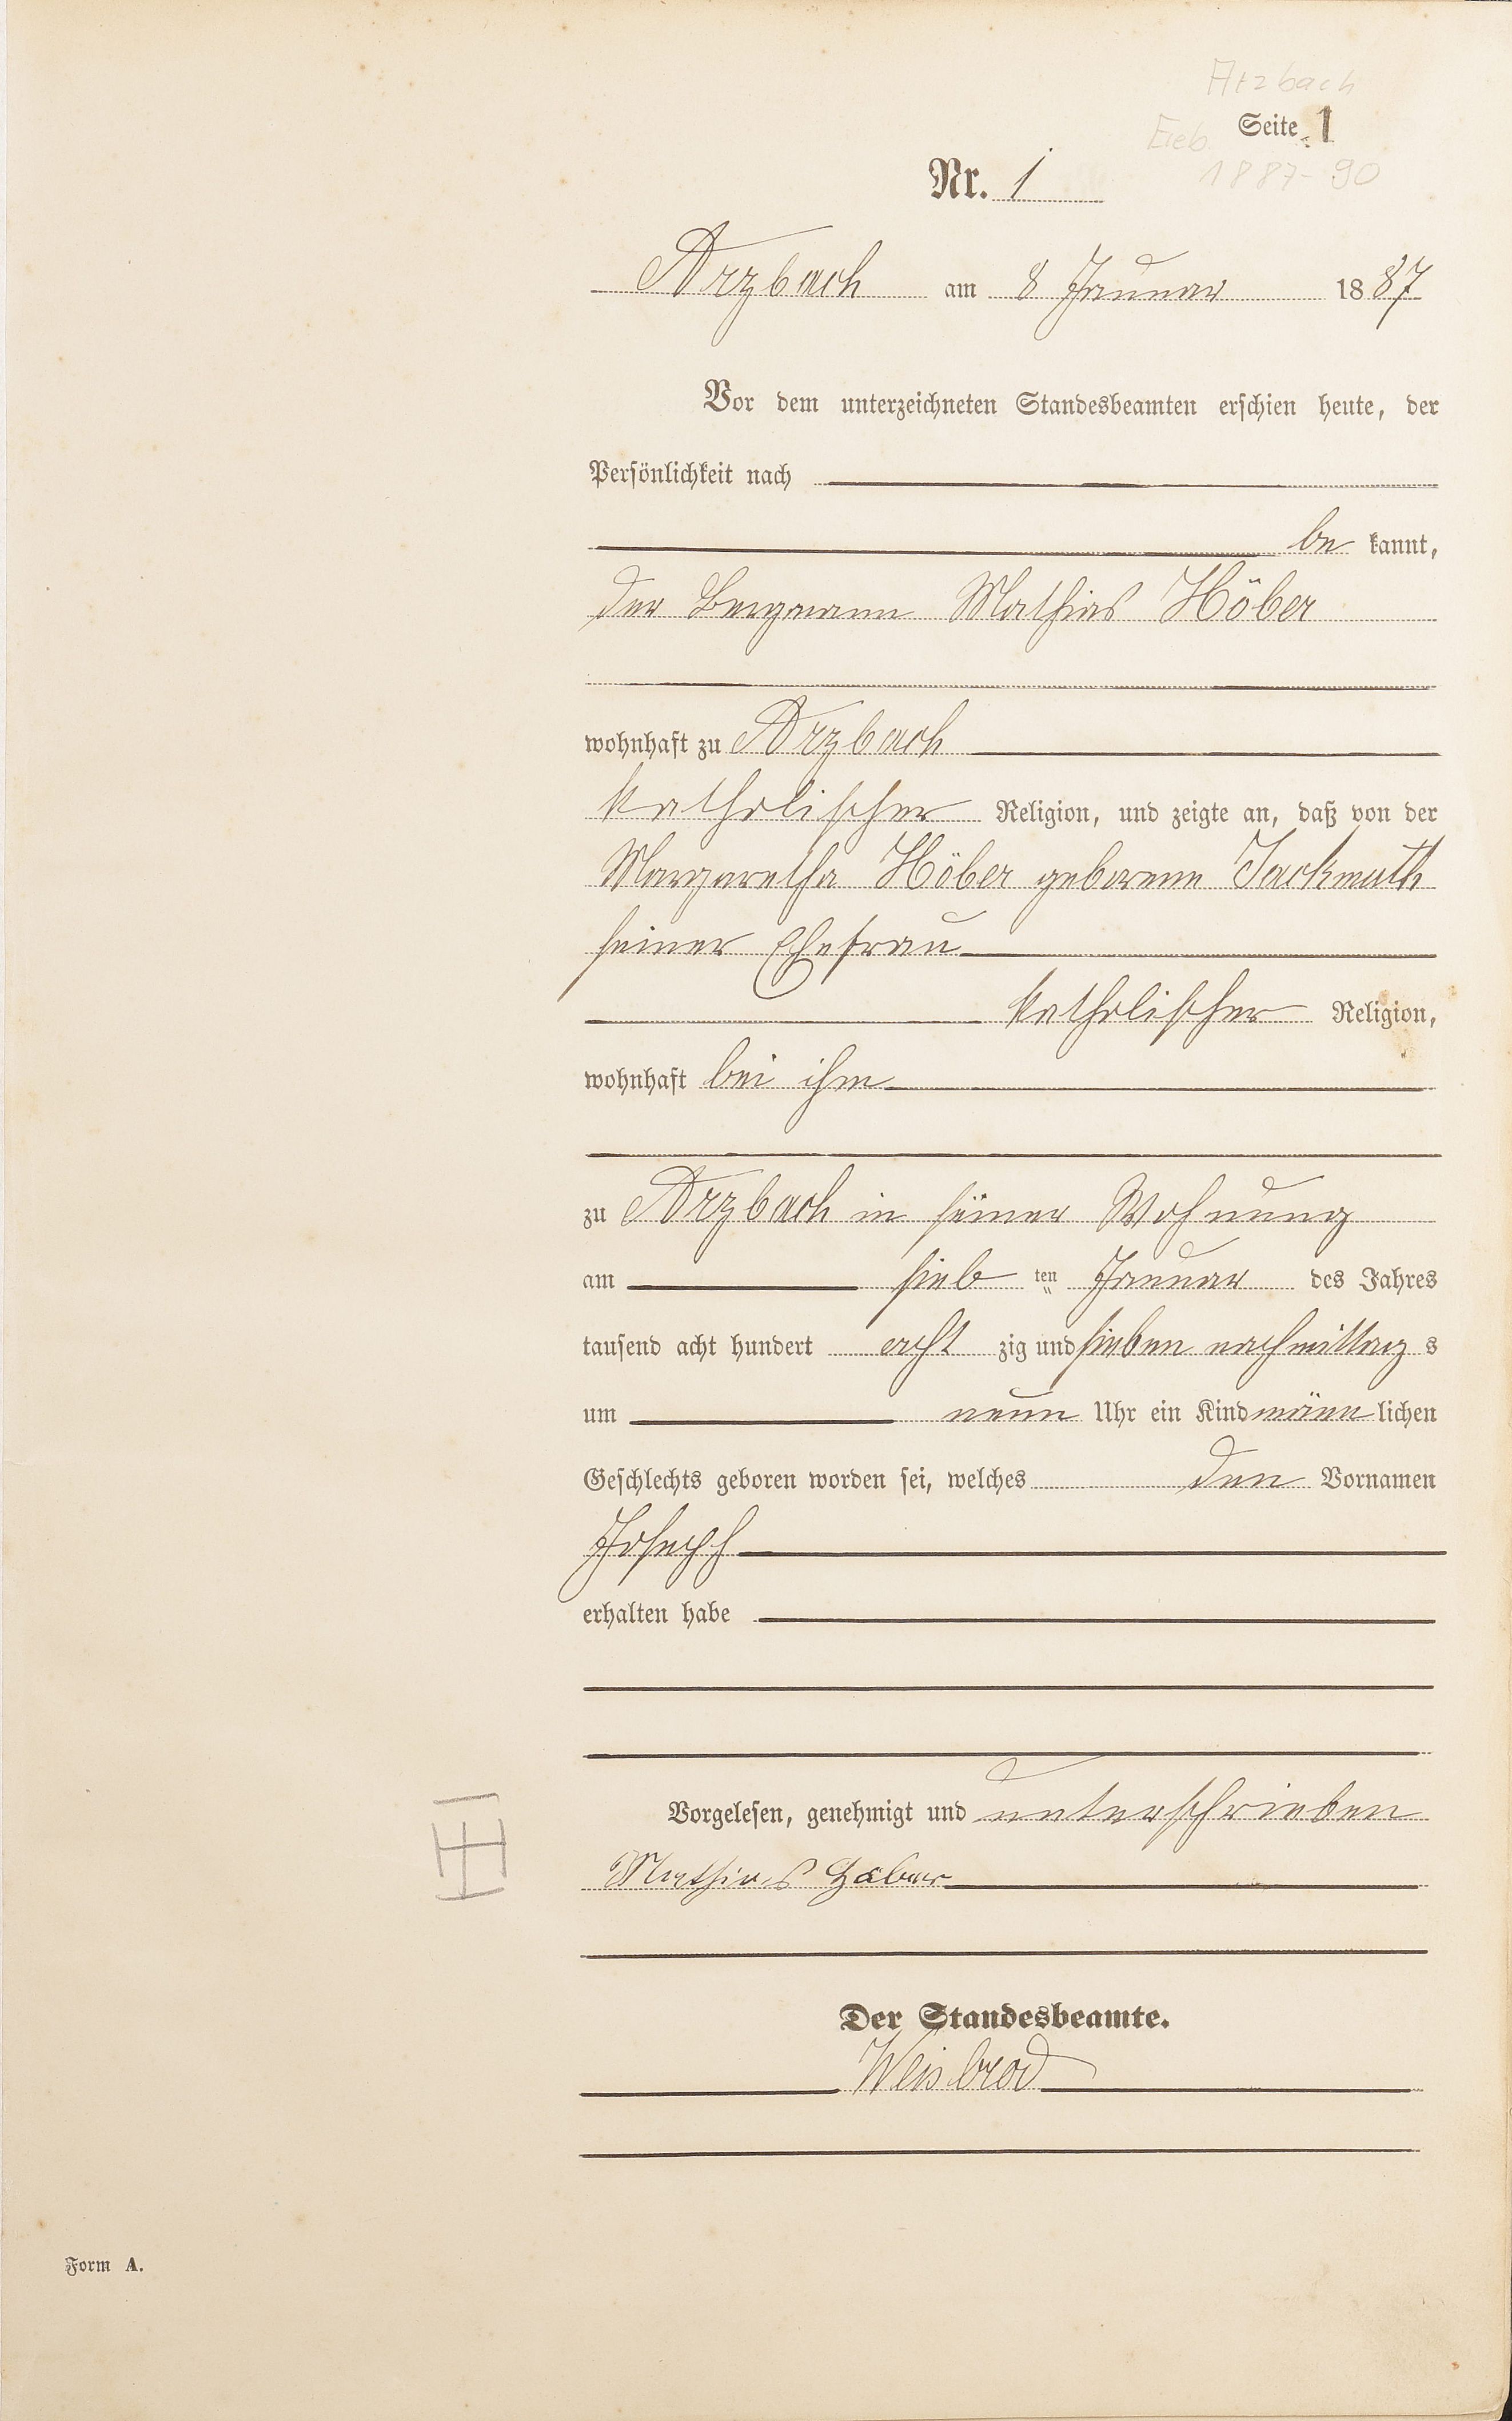 Arzbach
Seite 1
Geb.
1887-90
Nr. 1
Arzbach am 8 Januar 1887
Vor dem unterzeichneten Standesbeamten erschien heute, der
Persönlichkeit nach
be kannt,
der Bergmann Mathias Höber
wohnhaft zu Arzbach
katholischer Religion, und zeigte an, daß von der
Margaretha Höber geborene Jackmuth
seiner Ehefrau
katholischer Religion,
wohnhaft bei ihm
zu Arzbach in seiner Wohnung
am sieb ten Januar des Jahres
tausend acht hundert acht zig und sieben nachmittag s
um neun Uhr ein Kind männ lichen
Geschlechts geboren worden sei, welches den Vornamen
Joseph
erhalten habe
Vorgelesen, genehmigt und unterschrieben
Mathias Höber
Der Standesbeamte.
Weisbrod
Form A.